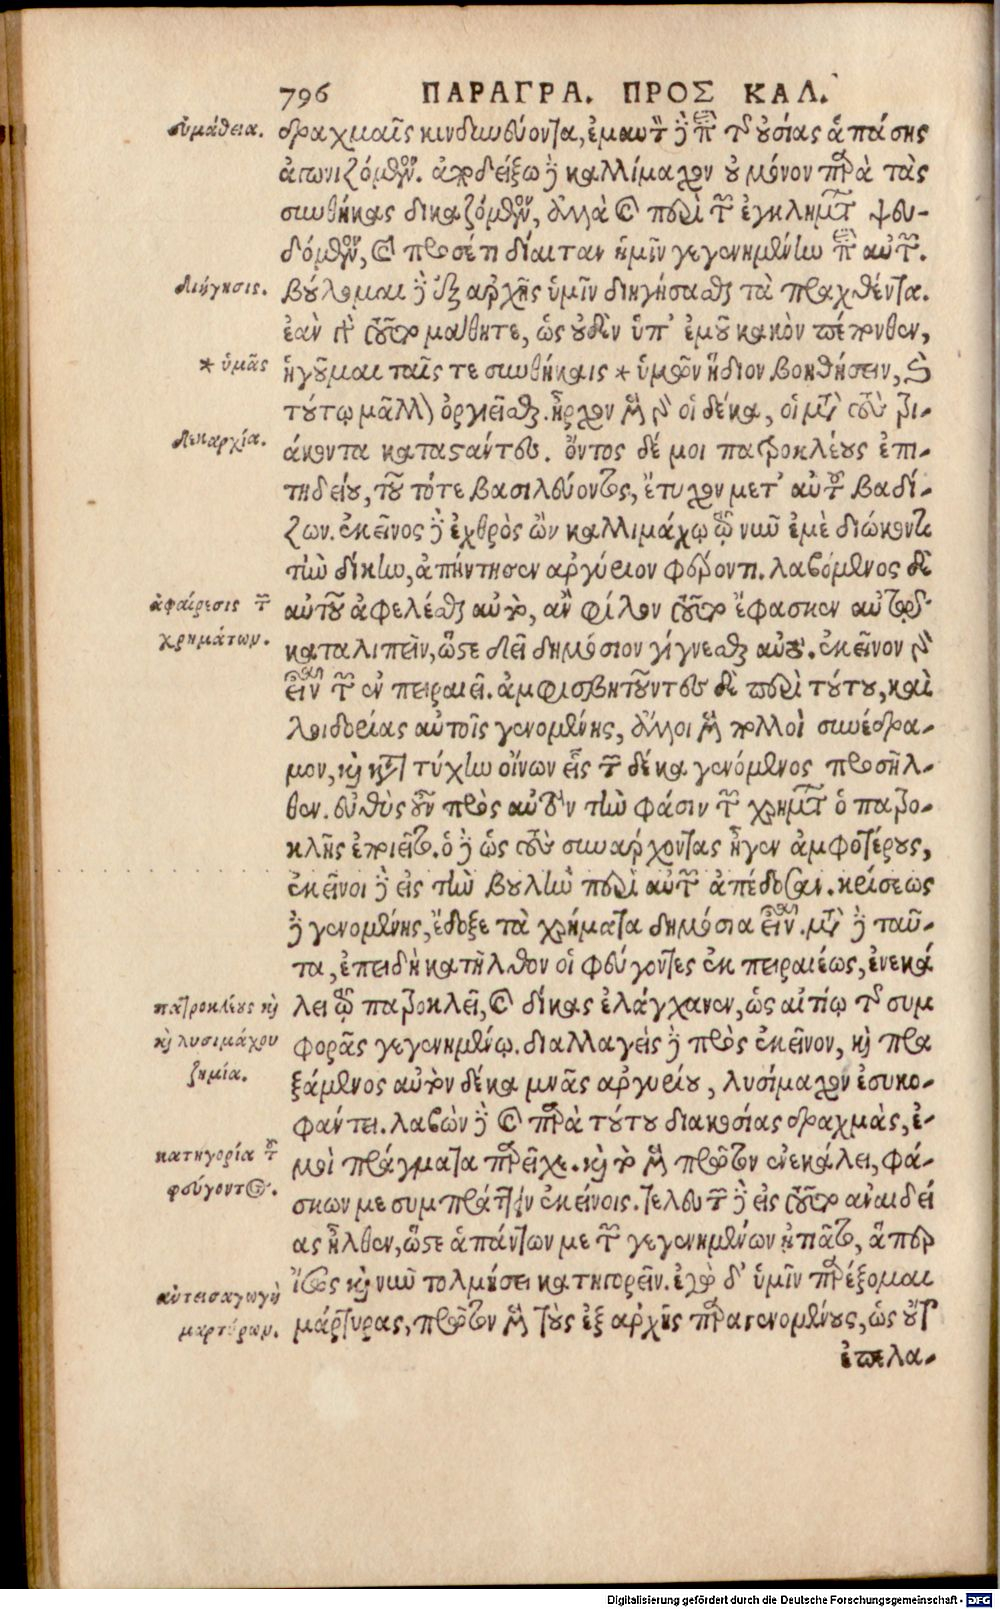 796 ΠΑΡΑΓΡΑ. ΠΡΟΣ ΚΑΛ.
εὐμάθεια.
δραχμαῖς κινδυνεύοντα, ἐμαυτὸν δὲ περὶ τῆς οὐσίας ἁπάσης
ἀγωνιζόμενον. ἀποδείξω δὲ καλλίμαχον οὐ μόνον παρὰ τὰς
συνθήκας δικαζόμενον, ἀλλὰ καὶ περὶ τῶν ἐγκλημάτων ψευ-
δόμενον, καὶ προσέτι δίαιταν ἡμῖν γεγενημένην περὶ αὐτῶν.
διήγησις.
βούλομαι δὲ ἐξ ἀρχῆς ὑμῖν διηγήσασθαι τὰ πραχθέντα.
ἐὰν γὰρ τοῦτο μάθητε, ὡς οὐδὲν ὑπ' ἐμοῦ κακὸν πέπονθεν,
* ὑμᾶς
ἡγοῦμαι ταῖς τε συνθήκαις * ὑμῶν ἥδιον βοηθήσειν, καὶ
τούτῳ μᾶλλον ὀργιεῖσθαι. ἦρχον μὲν γὰρ οἱ δέκα, οἱ μετὰ τοὺς τρι-
δεκαρχία.
άκοντα καταστάντες. ὄντος δέ μοι πατροκλέους ἐπι-
τηδείου, τοῦ τότε βασιλεύοντος, ἔτυχον μετ' αὐτοῦ βαδί-
ζων. ἐκεῖνος δὲ ἐχθρὸς ὢν καλλιμάχῳ τῷ νῦν ἐμὲ διώκοντι
τὴν δίκην, ἀπήντησεν ἀργύριον φέροντι. λαβόμενος δὲ
ἀφαίρεσις τῶν
χρημάτων.
αὐτοῦ ἀφελέσθαι αὐτὸ, ἂν φίλον τοῦτο ἔφασκεν αὐτὸ
καταλιπεῖν, ὥστε δεῖ δημόσιον γίγνεσθαι αὐτό. ἐκεῖνον γὰρ
εἶναι τῶν ἐν πειραιεῖ. ἀμφισβητοῦντος δὲ περὶ τούτου, καὶ
λοιδορίας αὐτοῖς γενομένης, ἄλλοι μὲν πολλοὶ συνέδρα-
μον, καὶ κατὰ τύχην οἴνων εἷς τῶν δέκα γενόμενος προσῆλ-
θεν. εὐθὺς οὖν πρὸς αὐτὸν τὴν φάσιν τῶν χρημάτων ὁ πατρο-
κλῆς ἐποιεῖτο. ὁ δὲ ὡς τοὺς συνάρχοντας ἦγεν ἀμφοτέρους,
ἐκεῖνοι δὲ εἰς τὴν βουλὴν περὶ αὐτῶν ἀπέδοσαν. κρίσεως
δὲ γενομένης, ἔδοξε τὰ χρήματα δημόσια εἶναι. μετὰ δὲ ταῦ-
τα, ἐπειδὴ κατῆλθον οἱ φεύγοντες ἐκ πειραιέως, ἐνεκά
πατροκλέους καὶ
καὶ λυσιμάχου
ζημία.
λει τῷ πατροκλεῖ, καὶ δίκας ἐλάγχανεν, ὡς αἰτίῳ τῆς συμ
φορᾶς γεγενημένῳ. διαλλαγεὶς δὲ πρὸς ἐκεῖνον, καὶ πρα
ξάμενος αὐτὸν δέκα μνᾶς ἀργυρίου, λυσίμαχον ἐσυκο-
φάντει. λαβὼν δὲ καὶ παρὰ τούτου διακοσίας δραχμὰς, ἐ-
κατηγορία τοῦ
φεύγοντος.
μοὶ πράγματα παρεῖχε. καὶ τὸ μὲν πρῶτον ἐνεκάλει, φά-
σκων με συμπράττειν ἐκείνοις. τελευτῶν δὲ εἰς τοῦτο ἀναιδεί
ας ἦλθεν, ὥστε ἁπάντων με τῶν γεγενημένων ᾐτιᾶτο, ἅπερ
ἀντεισαγωγὴ
μαρτύρων.
ἴσως καὶ νῦν τολμήσει κατηγορεῖν. ἐγὼ δ' ὑμῖν παρέξομαι
μάρτυρας, πρῶτον μὲν τοὺς ἐξ ἀρχῆς παραγενομένους, ὡς οὔτ'
ἐπελα-
Digitalisierung gefördert durch die Deutsche Forschungsgemeinschaft - DFG